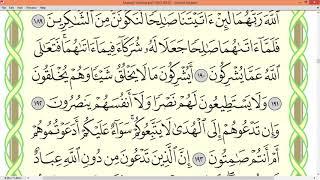 ٱللَّهَ رَبَّهُمَا لَئِنْ ءَاتَيْتَنَا صَٰلِحًا لَّنَكُونَنَّ مِنَ ٱلشَّٰكِرِينَ ١٨٩
فَلَمَّآ ءَاتَىٰهُمَا صَٰلِحًا جَعَلَا لَهُۥ شُرَكَآءَ فِيمَآ ءَاتَىٰهُمَا ۚ فَتَعَٰلَى
ٱللَّهُ عَمَّا يُشْرِكُونَ ١٩٠ أَيُشْرِكُونَ مَا لَا يَخْلُقُ شَيْـًٔا وَهُمْ يُخْلَقُونَ
١٩١ وَلَا يَسْتَطِيعُونَ لَهُمْ نَصْرًا وَلَآ أَنفُسَهُمْ يَنصُرُونَ ١٩٢
وَإِن تَدْعُوهُمْ إِلَى ٱلْهُدَىٰ لَا يَتَّبِعُوكُمْ ۚ سَوَآءٌ عَلَيْكُمْ أَدَعَوْتُمُوهُمْ
أَمْ أَنتُمْ صَٰمِتُونَ ١٩٣ إِنَّ ٱلَّذِينَ تَدْعُونَ مِن دُونِ ٱللَّهِ عِبَادٌ